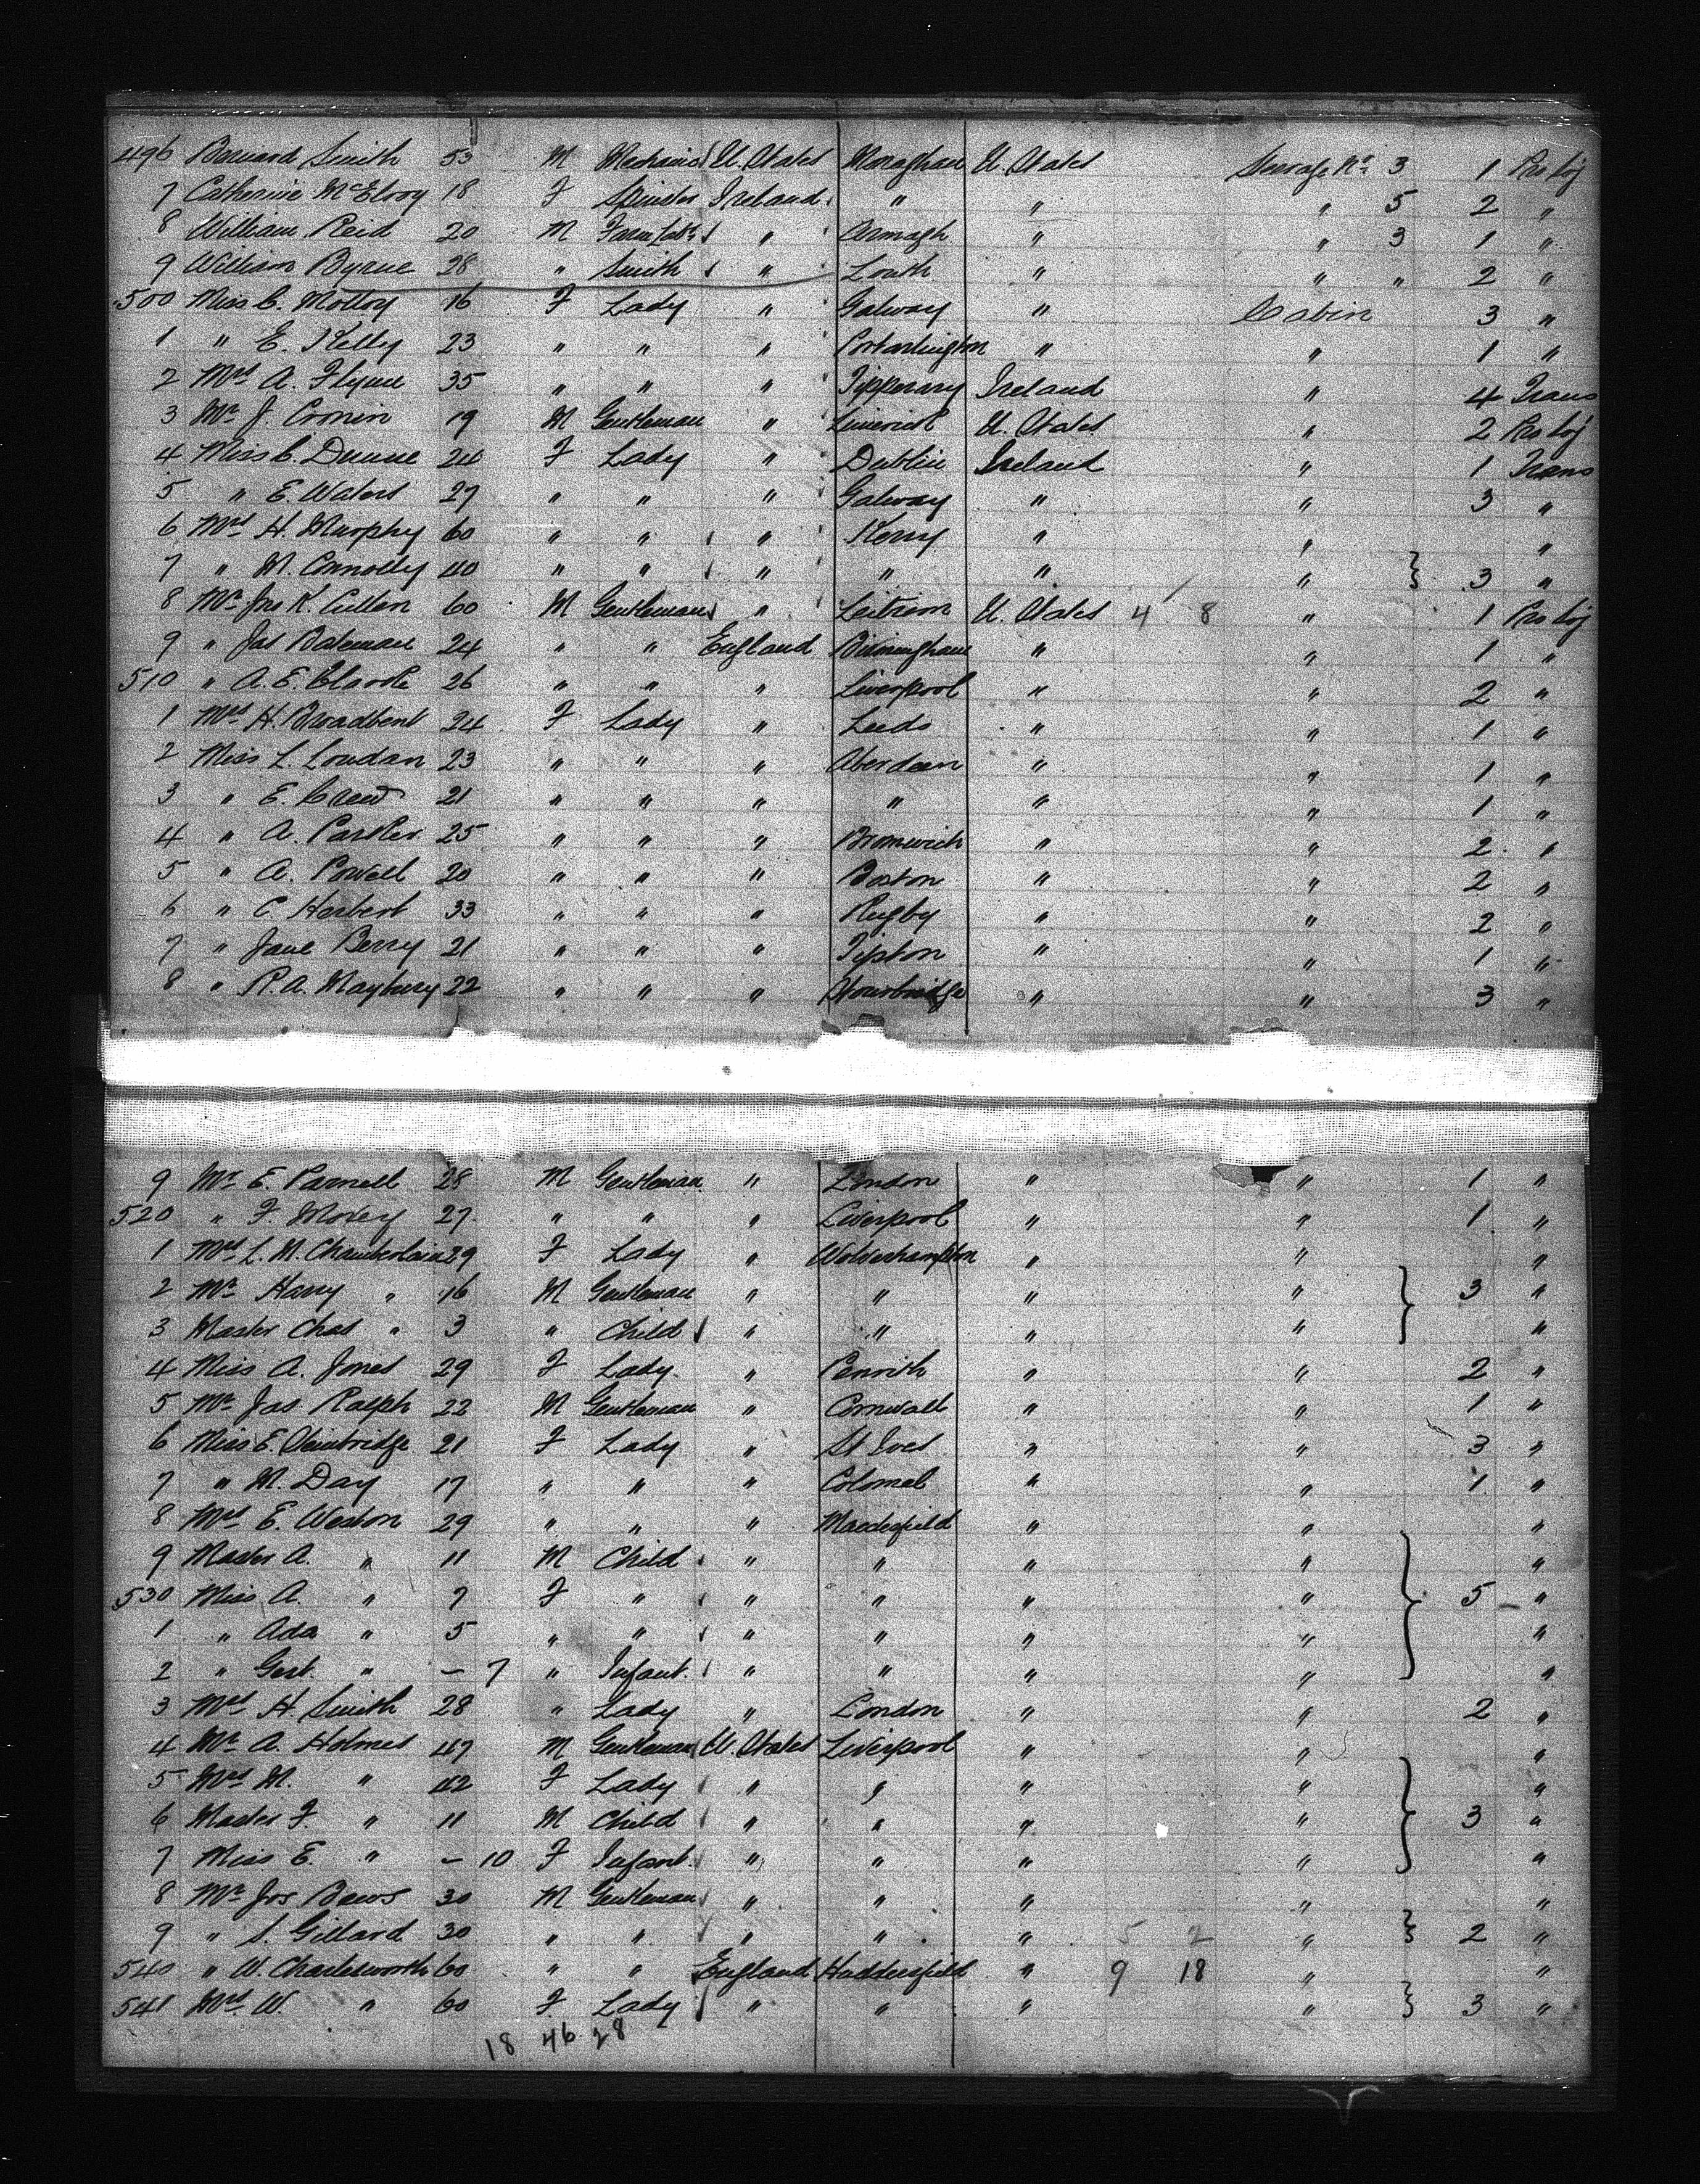 496 Bernard Smith 53 M Mechanic U. States Monaghan U. States Steerage No. 3 1 Pro Soj
7 Catherine McElroy 18 F Spinster Ireland " " " 5 2 "
8 William Reid 20 M Farm Labr " Armagh " " 3 1 "
9 William Byrne 28 " Smith " Louth " " " 2 "
500 Miss C. Molloy 16 F Lady " Galway " Cabin 3 "
1 " E. Kelly 23 " " " Portarlington " " 1 "
2 Mrs A. Flynn 35 " " " Tipperary Ireland " 4 Trans
3 Mr J. Cronin 19 M Gentleman " Limerick U. States " 2 Pro Soj
4 Miss C. Dunne 24 F Lady " Dublin Ireland " 1 Trans
5 " E. Waters 27 " " " Galway " " 3 "
6 Mrs H. Murphy 60 " " " Kerry " " "
7 " M. Connolly 40 " " " " " " 3 "
8 Mr Jno K. Cullen 60 M Gentleman " Leitrim U. States 4 8 " 1 Pro Soj
9 " Jas Bateman 24 " " England Birmingham " " 1 "
510 " A. E. Clarke 26 " " " Liverpool " " 2 "
1 Mrs H. Broadbent 24 F Lady " Leeds " " 1 "
2 Miss L. Loudan 23 " " " Aberdeen " " 1 "
3 " E. Crew 21 " " " " " " 1 "
4 " A. Parker 25 " " " Bromwich " " 2 "
5 " A. Powell 20 " " " Boston " " 2 "
6 " C Herbert 33 " " " Rugby " " 2 "
7 " Jane Berry 21 " " " Tipton " " 1 "
8 " R. A. Maybury 22 " " " Stourbridge " " 3 "
9 Mr E. Parnell 28 M Gentleman " London " " 1 "
520 " F. Morey 27 " " " Liverpool " " 1 "
1 Mrs L. M. Chamberlain 29 F Lady " Wolverhampton " " "
2 Mr Harry " 16 M Gentleman " " " " 3 "
3 Master Chas " 3 " Child " " " " "
4 Miss A. Jones 29 F Lady " Penrith " " 2 "
5 Mr Jas Ralph 22 M Gentleman " Cornwall " " 1 "
6 Miss E. 21 F Lady " St Ives " " 3 "
7 " M. Day 17 " " " " " 1 "
8 Mrs E. Weston 29 " " " Macclesfield " " "
9 Master A. " 11 M Child " " " " "
530 Miss A. " 7 F " " " " " 5 "
1 " Ada " 5 " " " " " " "
2 " Gert. " – 7 " Infant " " " " "
3 Mrs H Smith 28 " Lady " London " " 2 "
4 Mr A. Holmes 47 M Gentleman U. States Liverpool " " "
5 Mrs M. " 42 F Lady " " " " "
6 Master F. " 11 M Child " " " " 3 "
7 Miss E. " – 10 F Infant " " " " "
8 Mr Jos Baws 30 M Gentleman " " " " "
9 " S. Gillard 30 " " " " " 5 2 " 2 "
540 " W. Charlesworth 60 " " England Huddersfield " 9 18 " "
541 Mrs W. " 60 F Lady " " " " 3 "
18 46 28